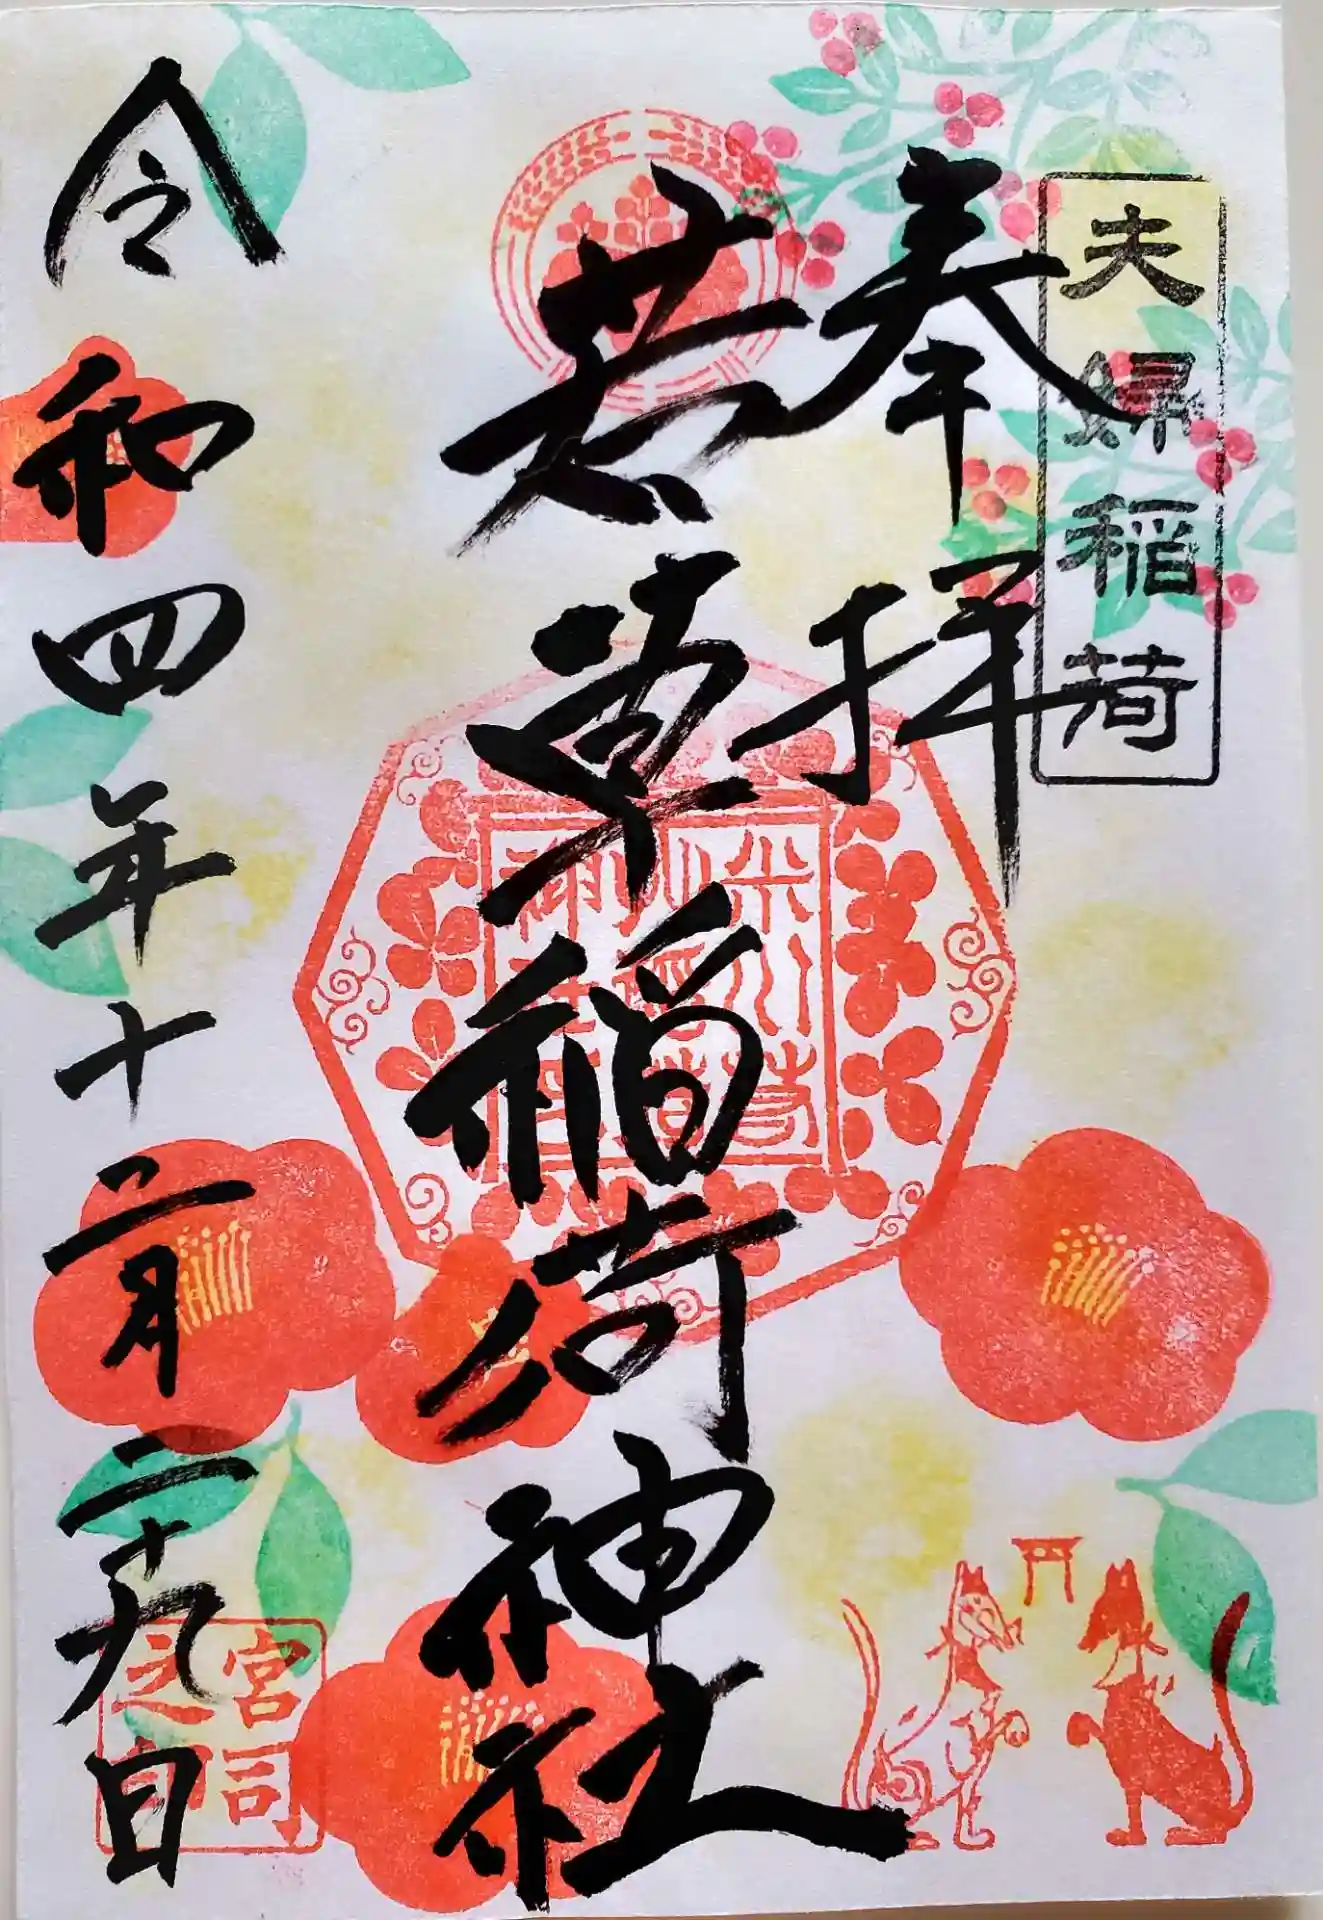 夫婦稲荷
奉拝
若草稲荷神社
令和四年十二月二十九日
宮司之印